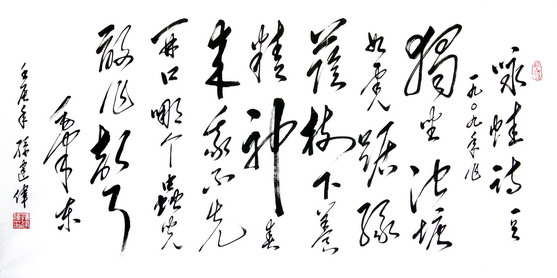 咏蛙诗一首
一九〇九年作
獨坐池塘
如虎踞绿
蔭树下养
精神春
来我不先
开口哪个蟲兒
敢作声
毛泽东
壬辰年 建偉